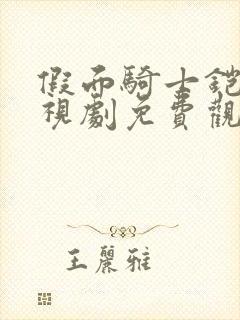 假面騎士鎧
視劇免費觀
王麗雅